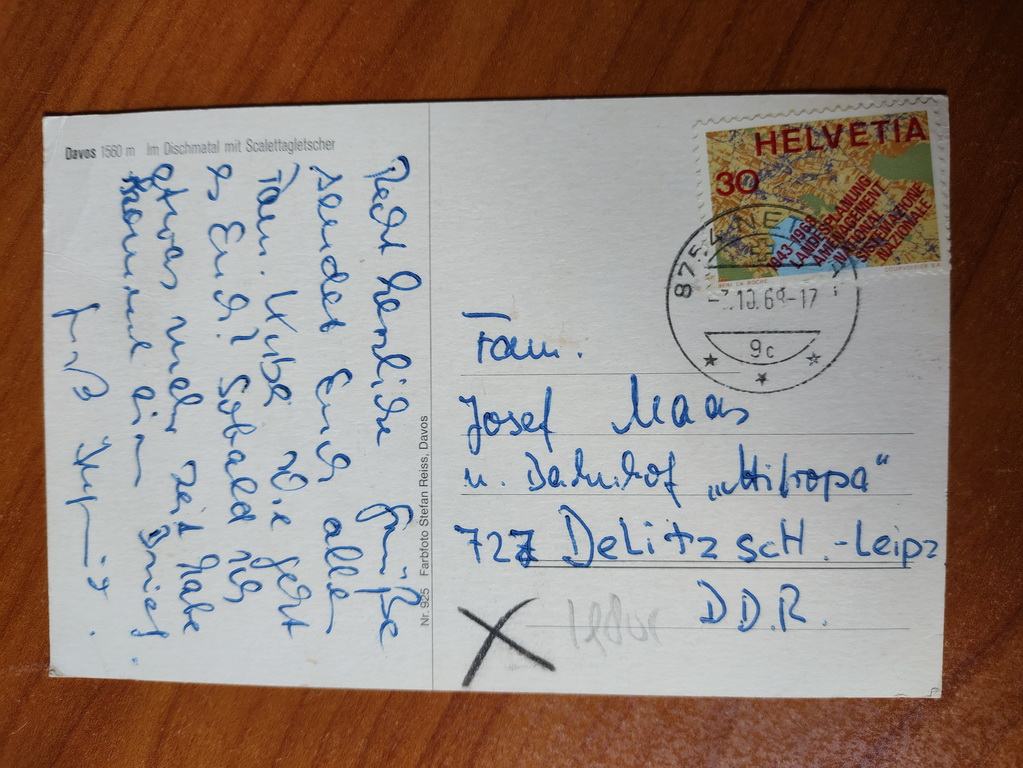 Davos 1560 m Im Dischmatal mit Scalettagletscher
Recht herzliche Grüße
sendet Euch allen
Fam. Wie geht
es Euch? Sobald ich
etwas mehr Zeit habe
kommt ein Brief.
Gruß
Nr. 925 Farbfoto Stefan Reiss, Davos
HELVETIA
30
1943-1968
LANDESPLANUNG
AMENAGEMENT
NATIONAL
SISTEMAZIONE
NAZIONALE
COURVOISIER S.A.
875
10.69-17
9c
Fam.
Josef Maas
u. Bahnhof „Mitropa“
727 DeLitzscH.-Leipz
D.D.R.